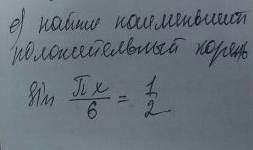 е) найти наименьший
положительный корень
sin πx/6 = 1/2